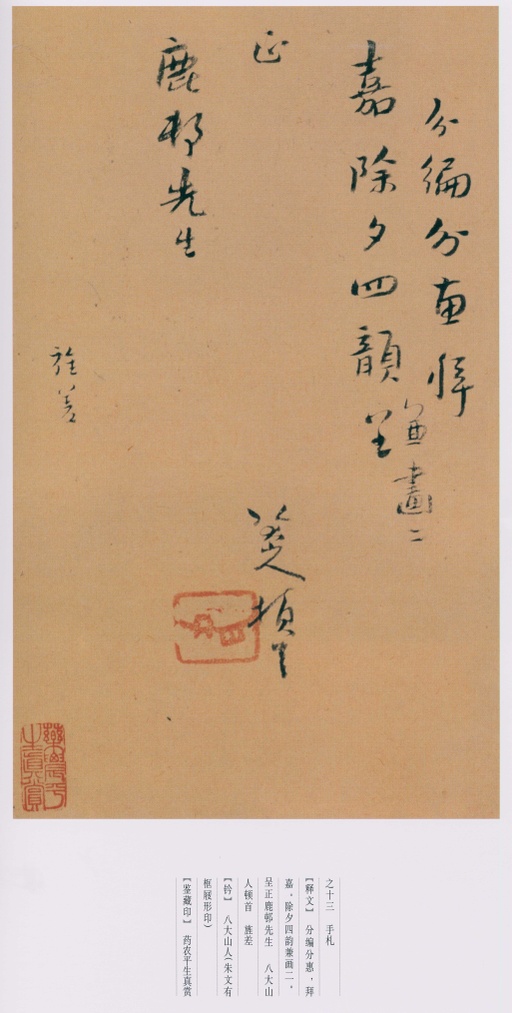 分编分惠拜
嘉除夕四韻兼畫二呈
正
鹿邨先生
八大山人頓首
八大山人
藥農平生真賞
之十三 手札
【释文】 分编分惠,拜
嘉。除夕四韵兼画二,
呈正鹿邨先生 八大山
人顿首 旌差
【钤】 八大山人(朱文有
框屐形印)
【鉴藏印】 药农平生真赏